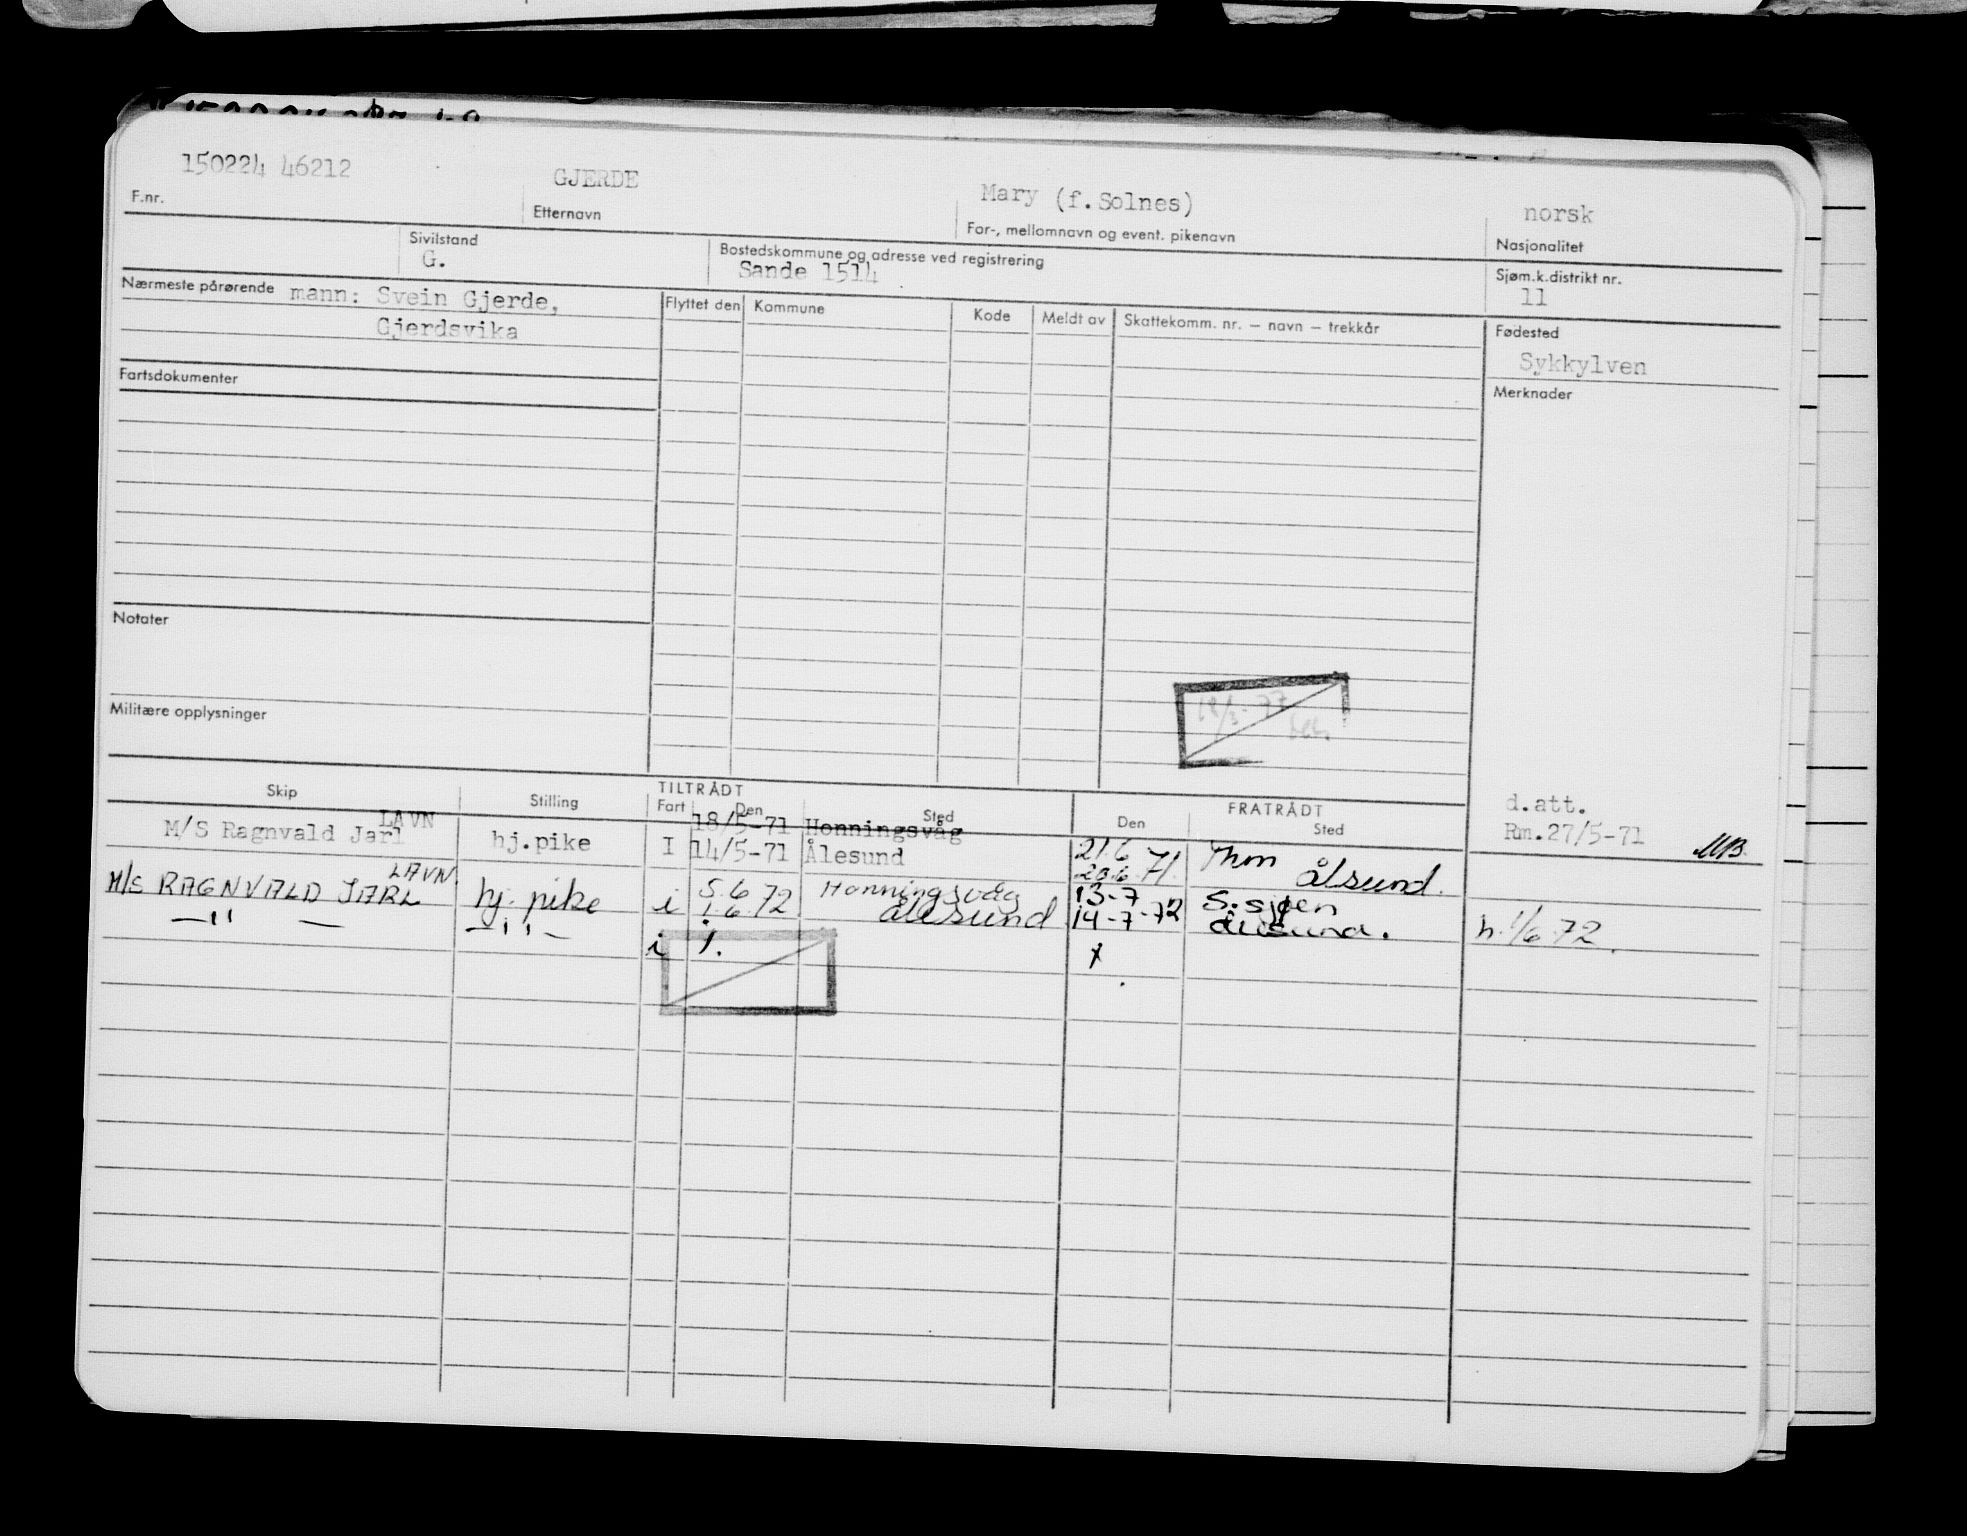 150224 46212 GJERDE Mary (f.Solnes) norsk
F.nr. Etternavn For-, mellomnavn og event. pikenavn Nasjonalitet
Sivilstand Bostedskommune og adresse ved registrering Sjøm.k.distrikt nr.
G. Sande 1514 11
Nærmeste pårørende mann: Svein Gjerde, Flyttet den Kommune Kode Meldt av Skattekomm. nr. – navn – trekkår Fødested
Gjerdsvika Sykkylven
Fartsdokumenter Merknader
Notater
Militære opplysninger
TILTRÅDT FRATRÅDT d.att.
Skip Stilling Fart Den Sted Den Sted Rm.27/5-71 MB
LAVN 18/5-71 Honningsvåg 21.6
M/S Ragnvald Jarl hj.pike I 14/5-71 Ålesund 20.6.71. Thm Ålsund.
LAVN. 5.6 Honningsvåg 13-7 S.sjøen
M/S RAGNVALD JARL hj. pike i 1.6.72 Ålesund 14-7-72 Ålesund. h.1/6.72.
—"— —"— i 1.